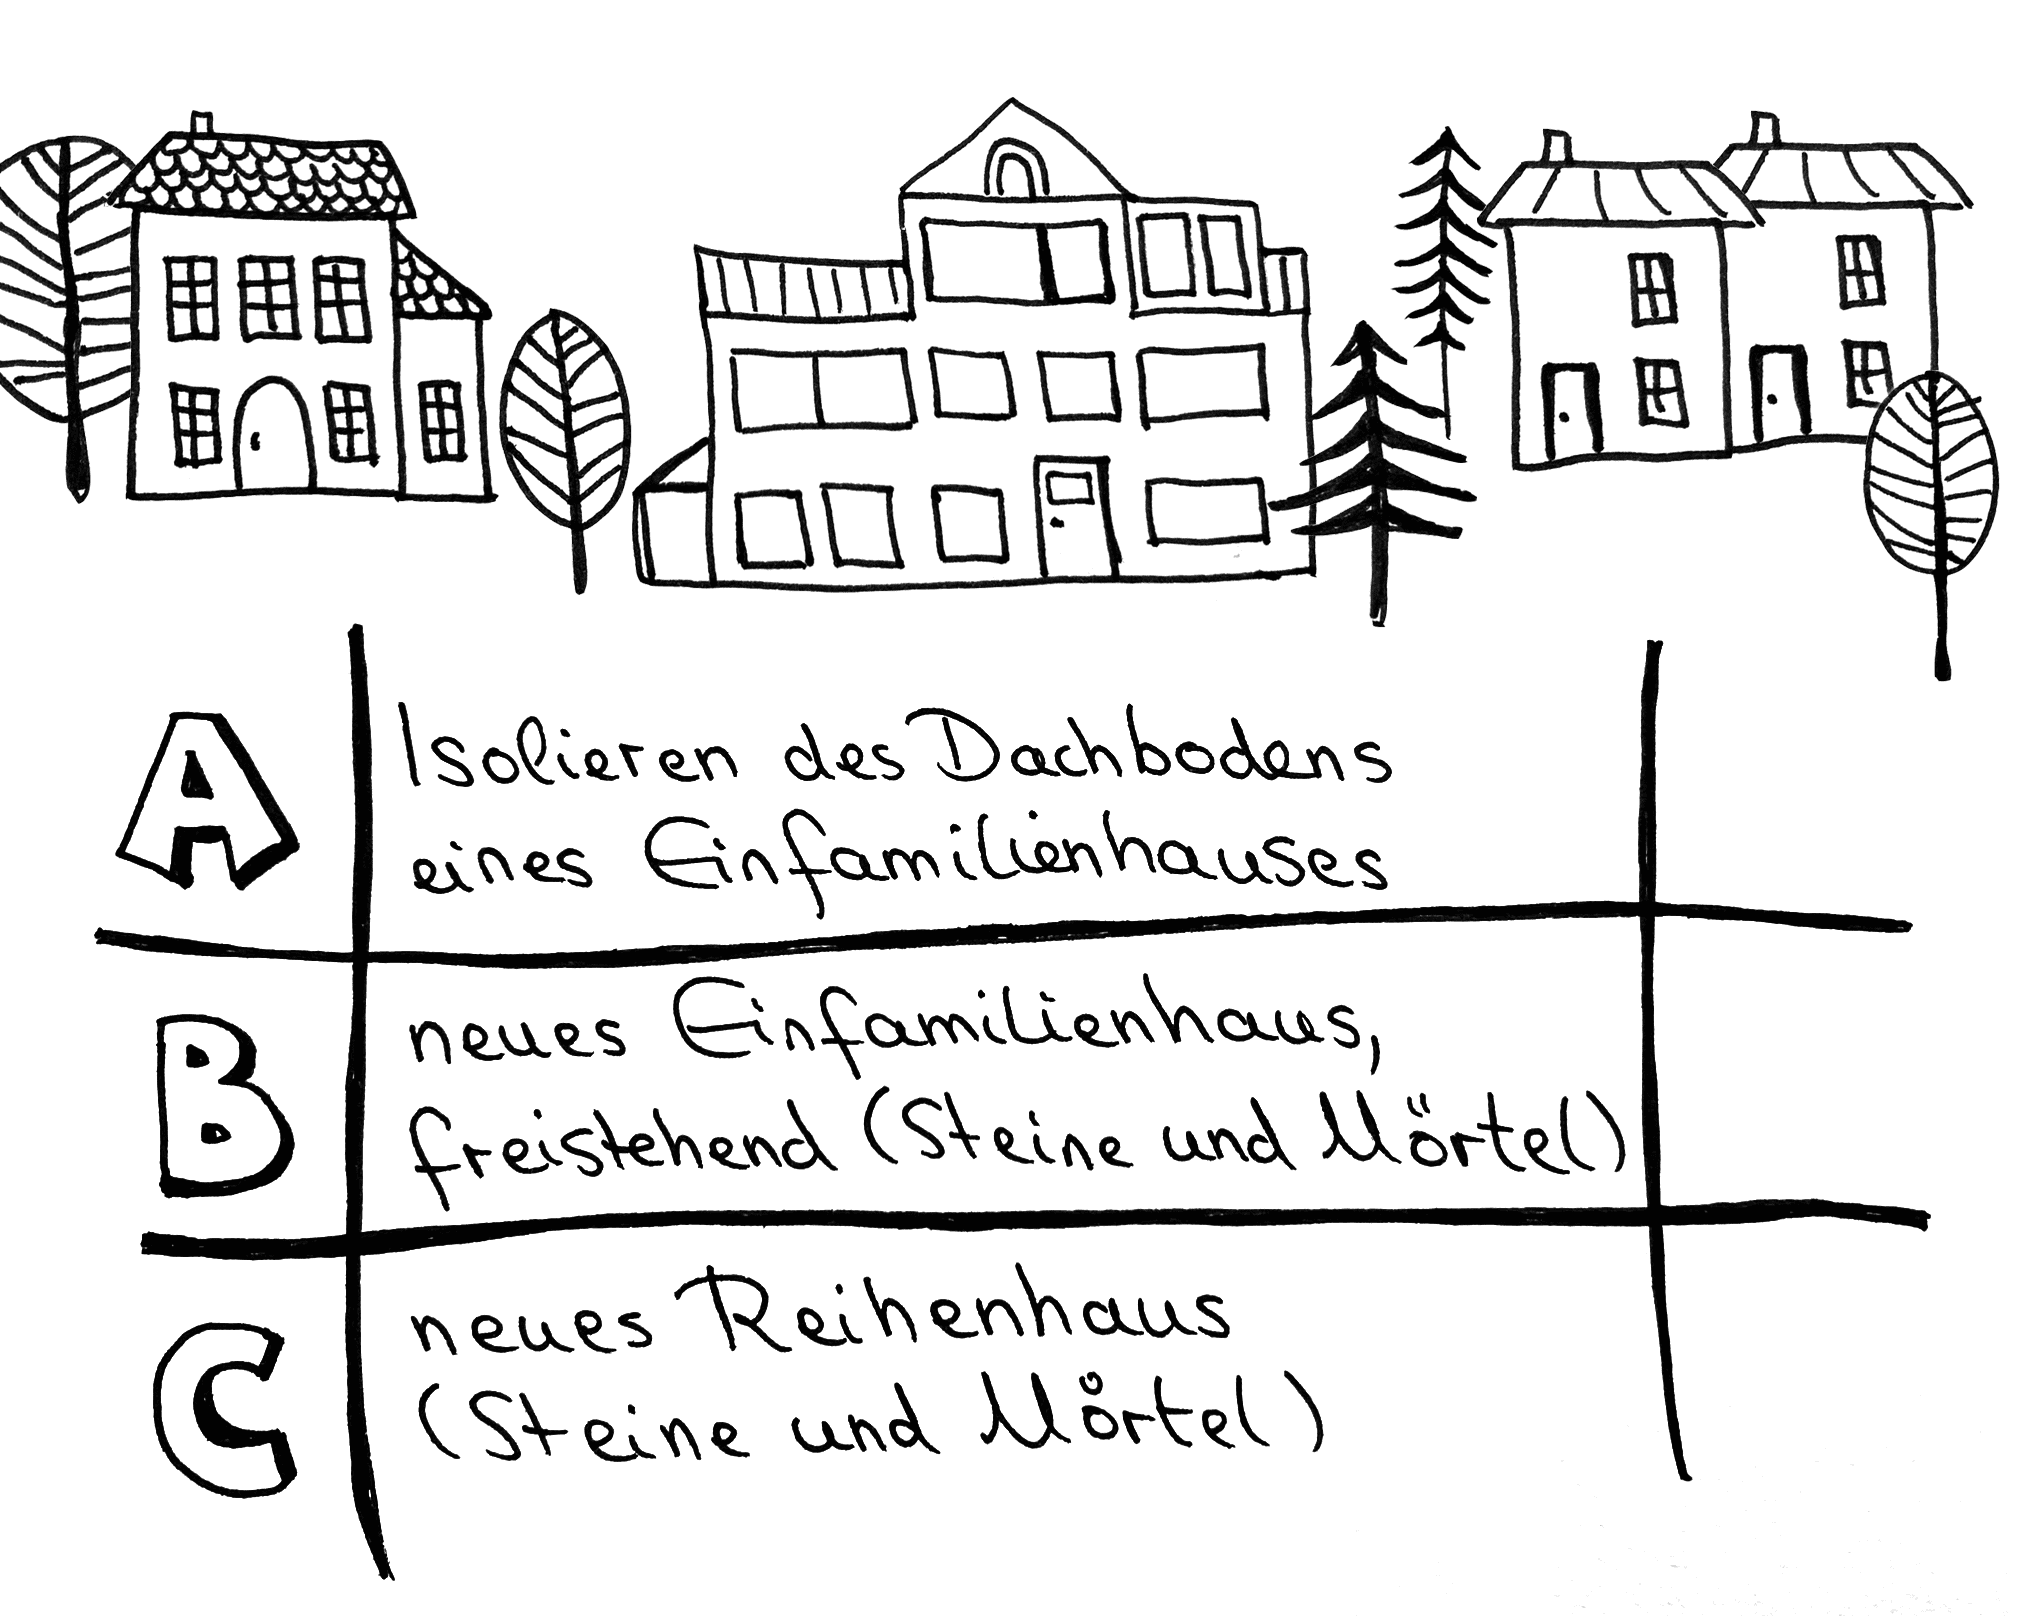 A
Isolieren des Dachbodens
eines Einfamilienhauses
B
neues Einfamilienhaus,
freistehend (Steine und Mörtel)
C
neues Reihenhaus
(Steine und Mörtel)